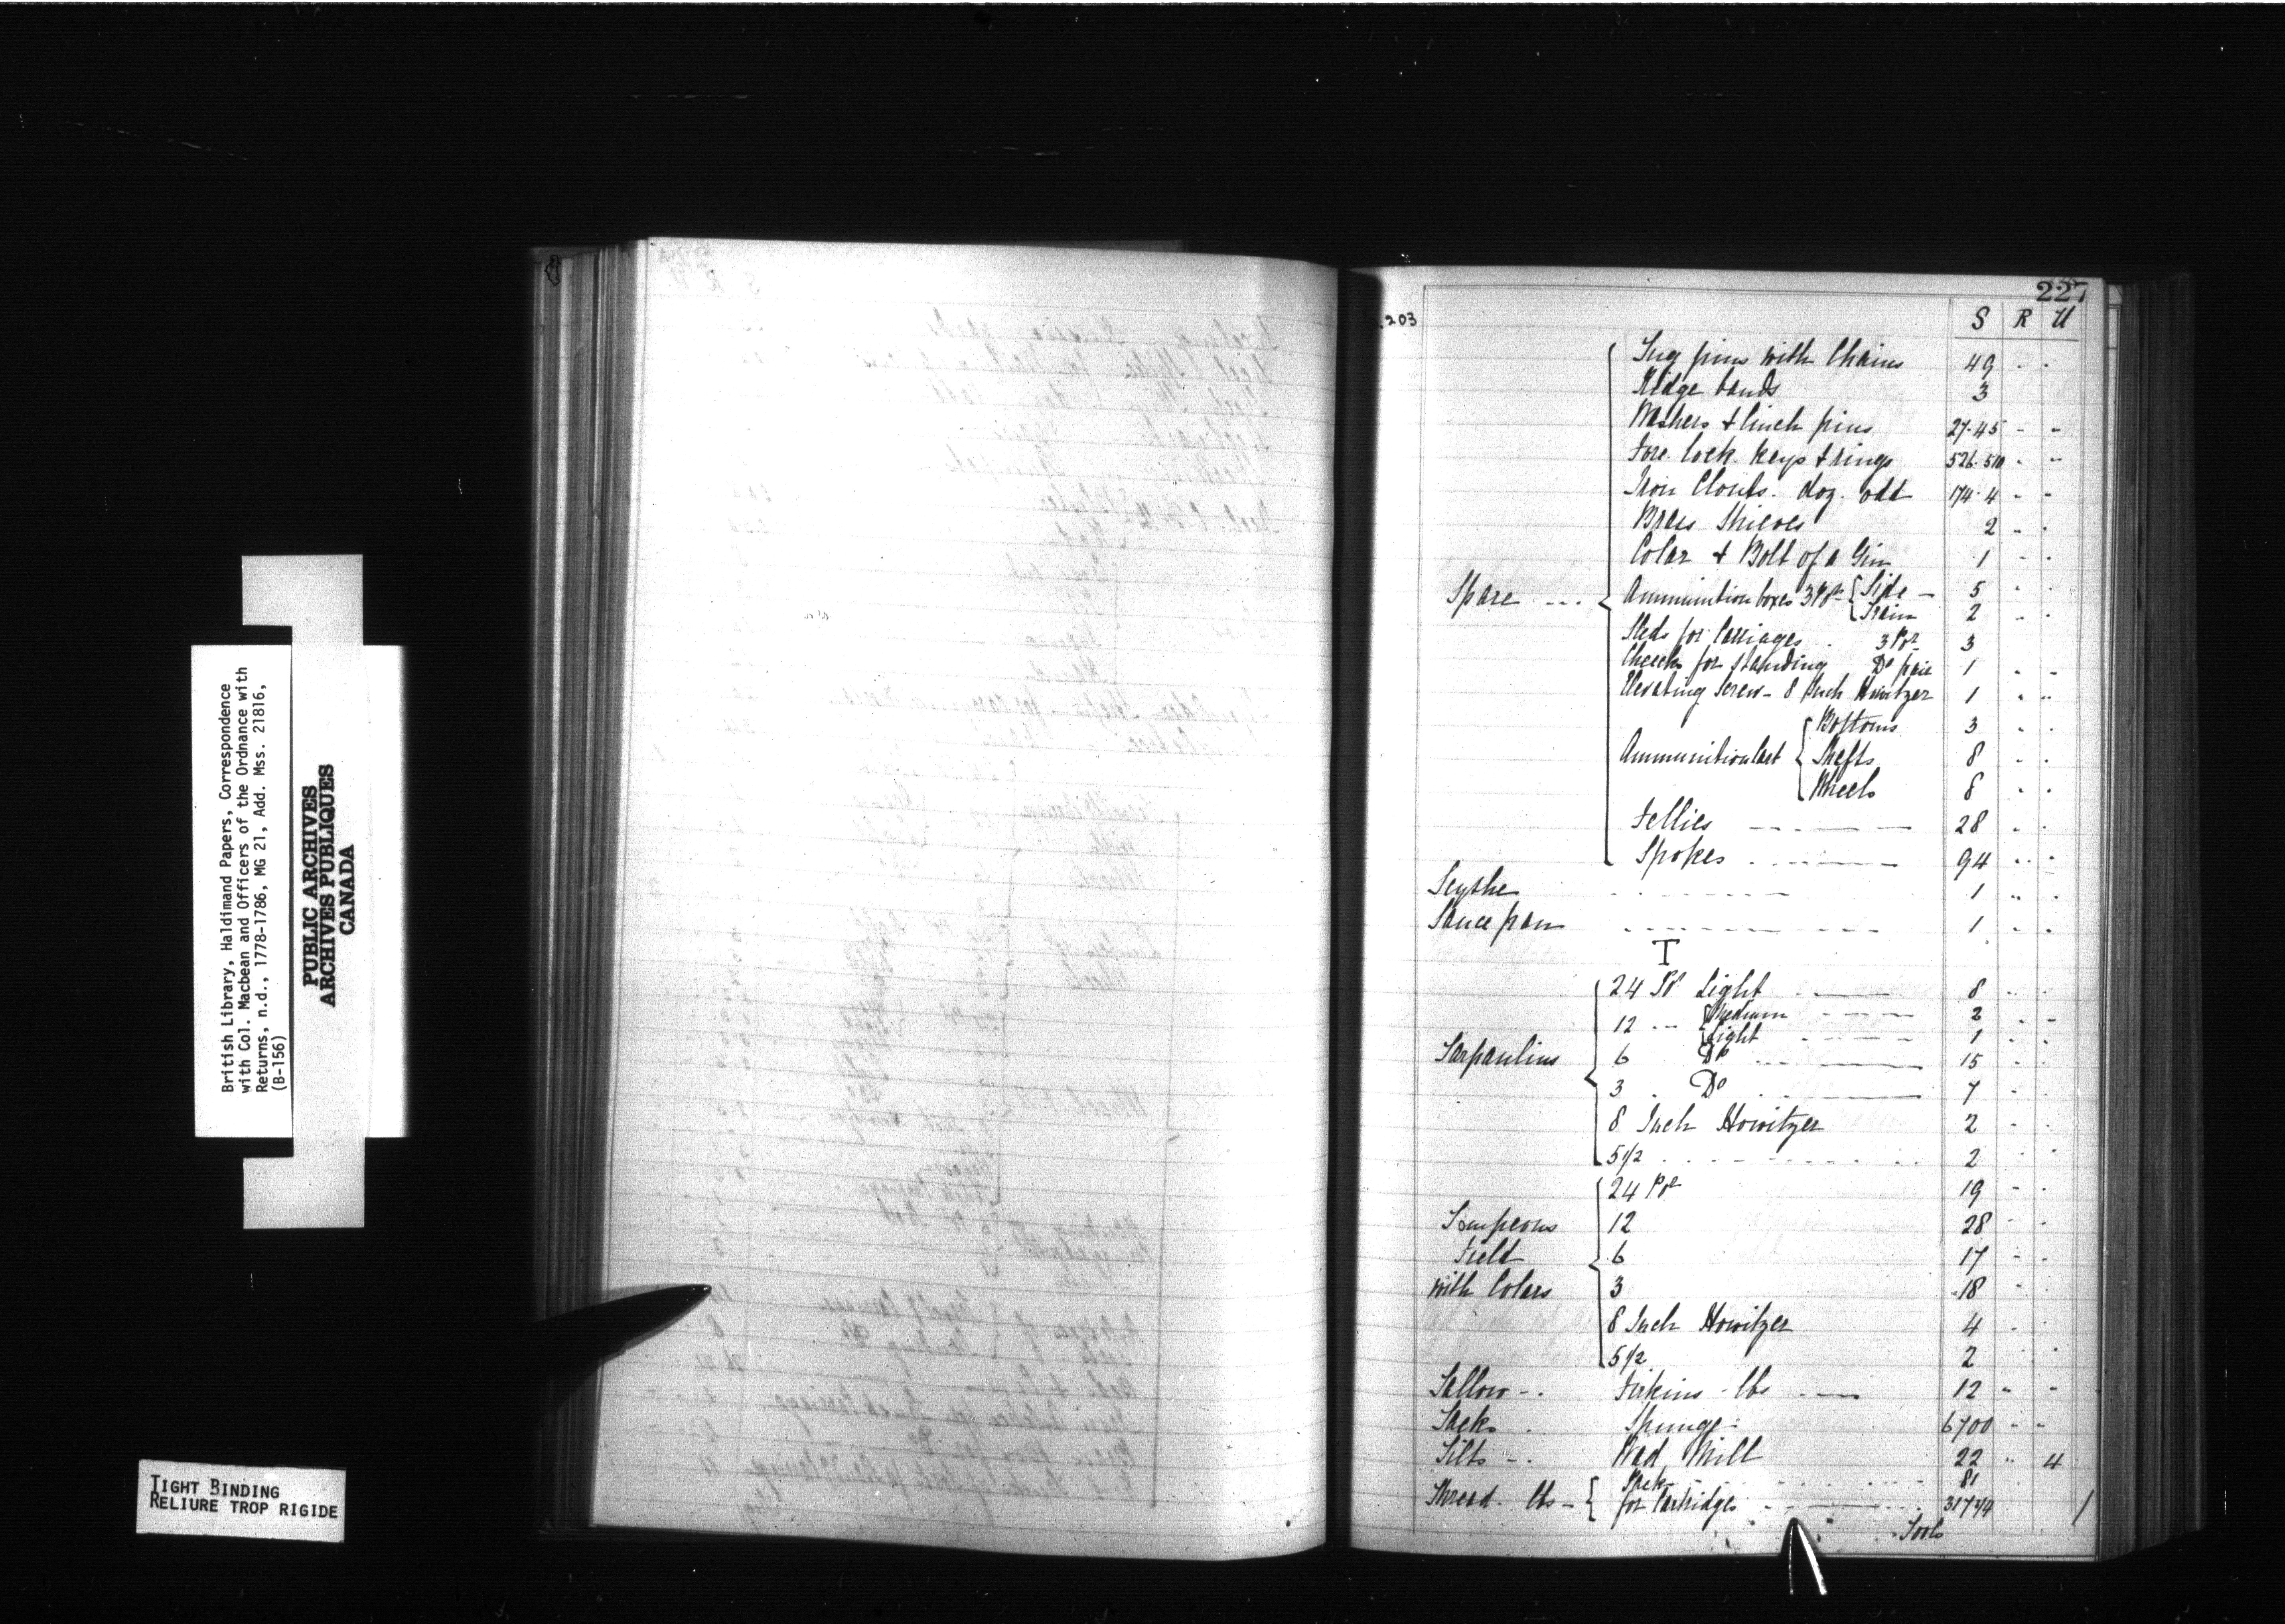 British Library, Haldimand Papers, Correspondence
with Col. Macbean and Officers of the Ordnance with
Returns, n.d., 1778-1786, MG 21, Add. Mss. 21816,
(B-156)
PUBLIC ARCHIVES
ARCHIVES PUBLIQUES
CANADA
TIGHT BINDING
RELIURE TROP RIGIDE
227
203
S R U
Spare
Tug pins with Chains 49
Ridge bands 3
Washers & linch pins 27.45
Fore lock keys & rings 526.510
Iron Clouts. doz. odd 174.4
Brass Shieves 2
Colar & Bolt of a Gin 1
Ammunition boxes 3 Pdr { Side 5
Train 2
Beds for Carriages 3 Pdr 3
Cheeks for standing Do pair 1
Elevating Screw - 8 Inch Howitzer 1
Ammunition Cart { Bottoms 3
Shafts 8
Wheels 8
Fellies 28
Spokes 94
Scythe 1
Sauce pan 1
T
Tarpaulins
24 Pr Light 8
12 { Medium 2
Light 1
6 Do 15
3 Do 7
8 Inch Howitzer 2
5 1/2 2
Tompeons
Field
with Colars
24 Pdr 19
12 28
6 17
3 18
8 Inch Howitzer 4
5 1/2 2
Tallow - Firkins - lbs 12
Tacks Spunge 6700
Tilts - Wad Mill 22 " 4
Thread lbs - { Pack 81
for Cartridges
Tools